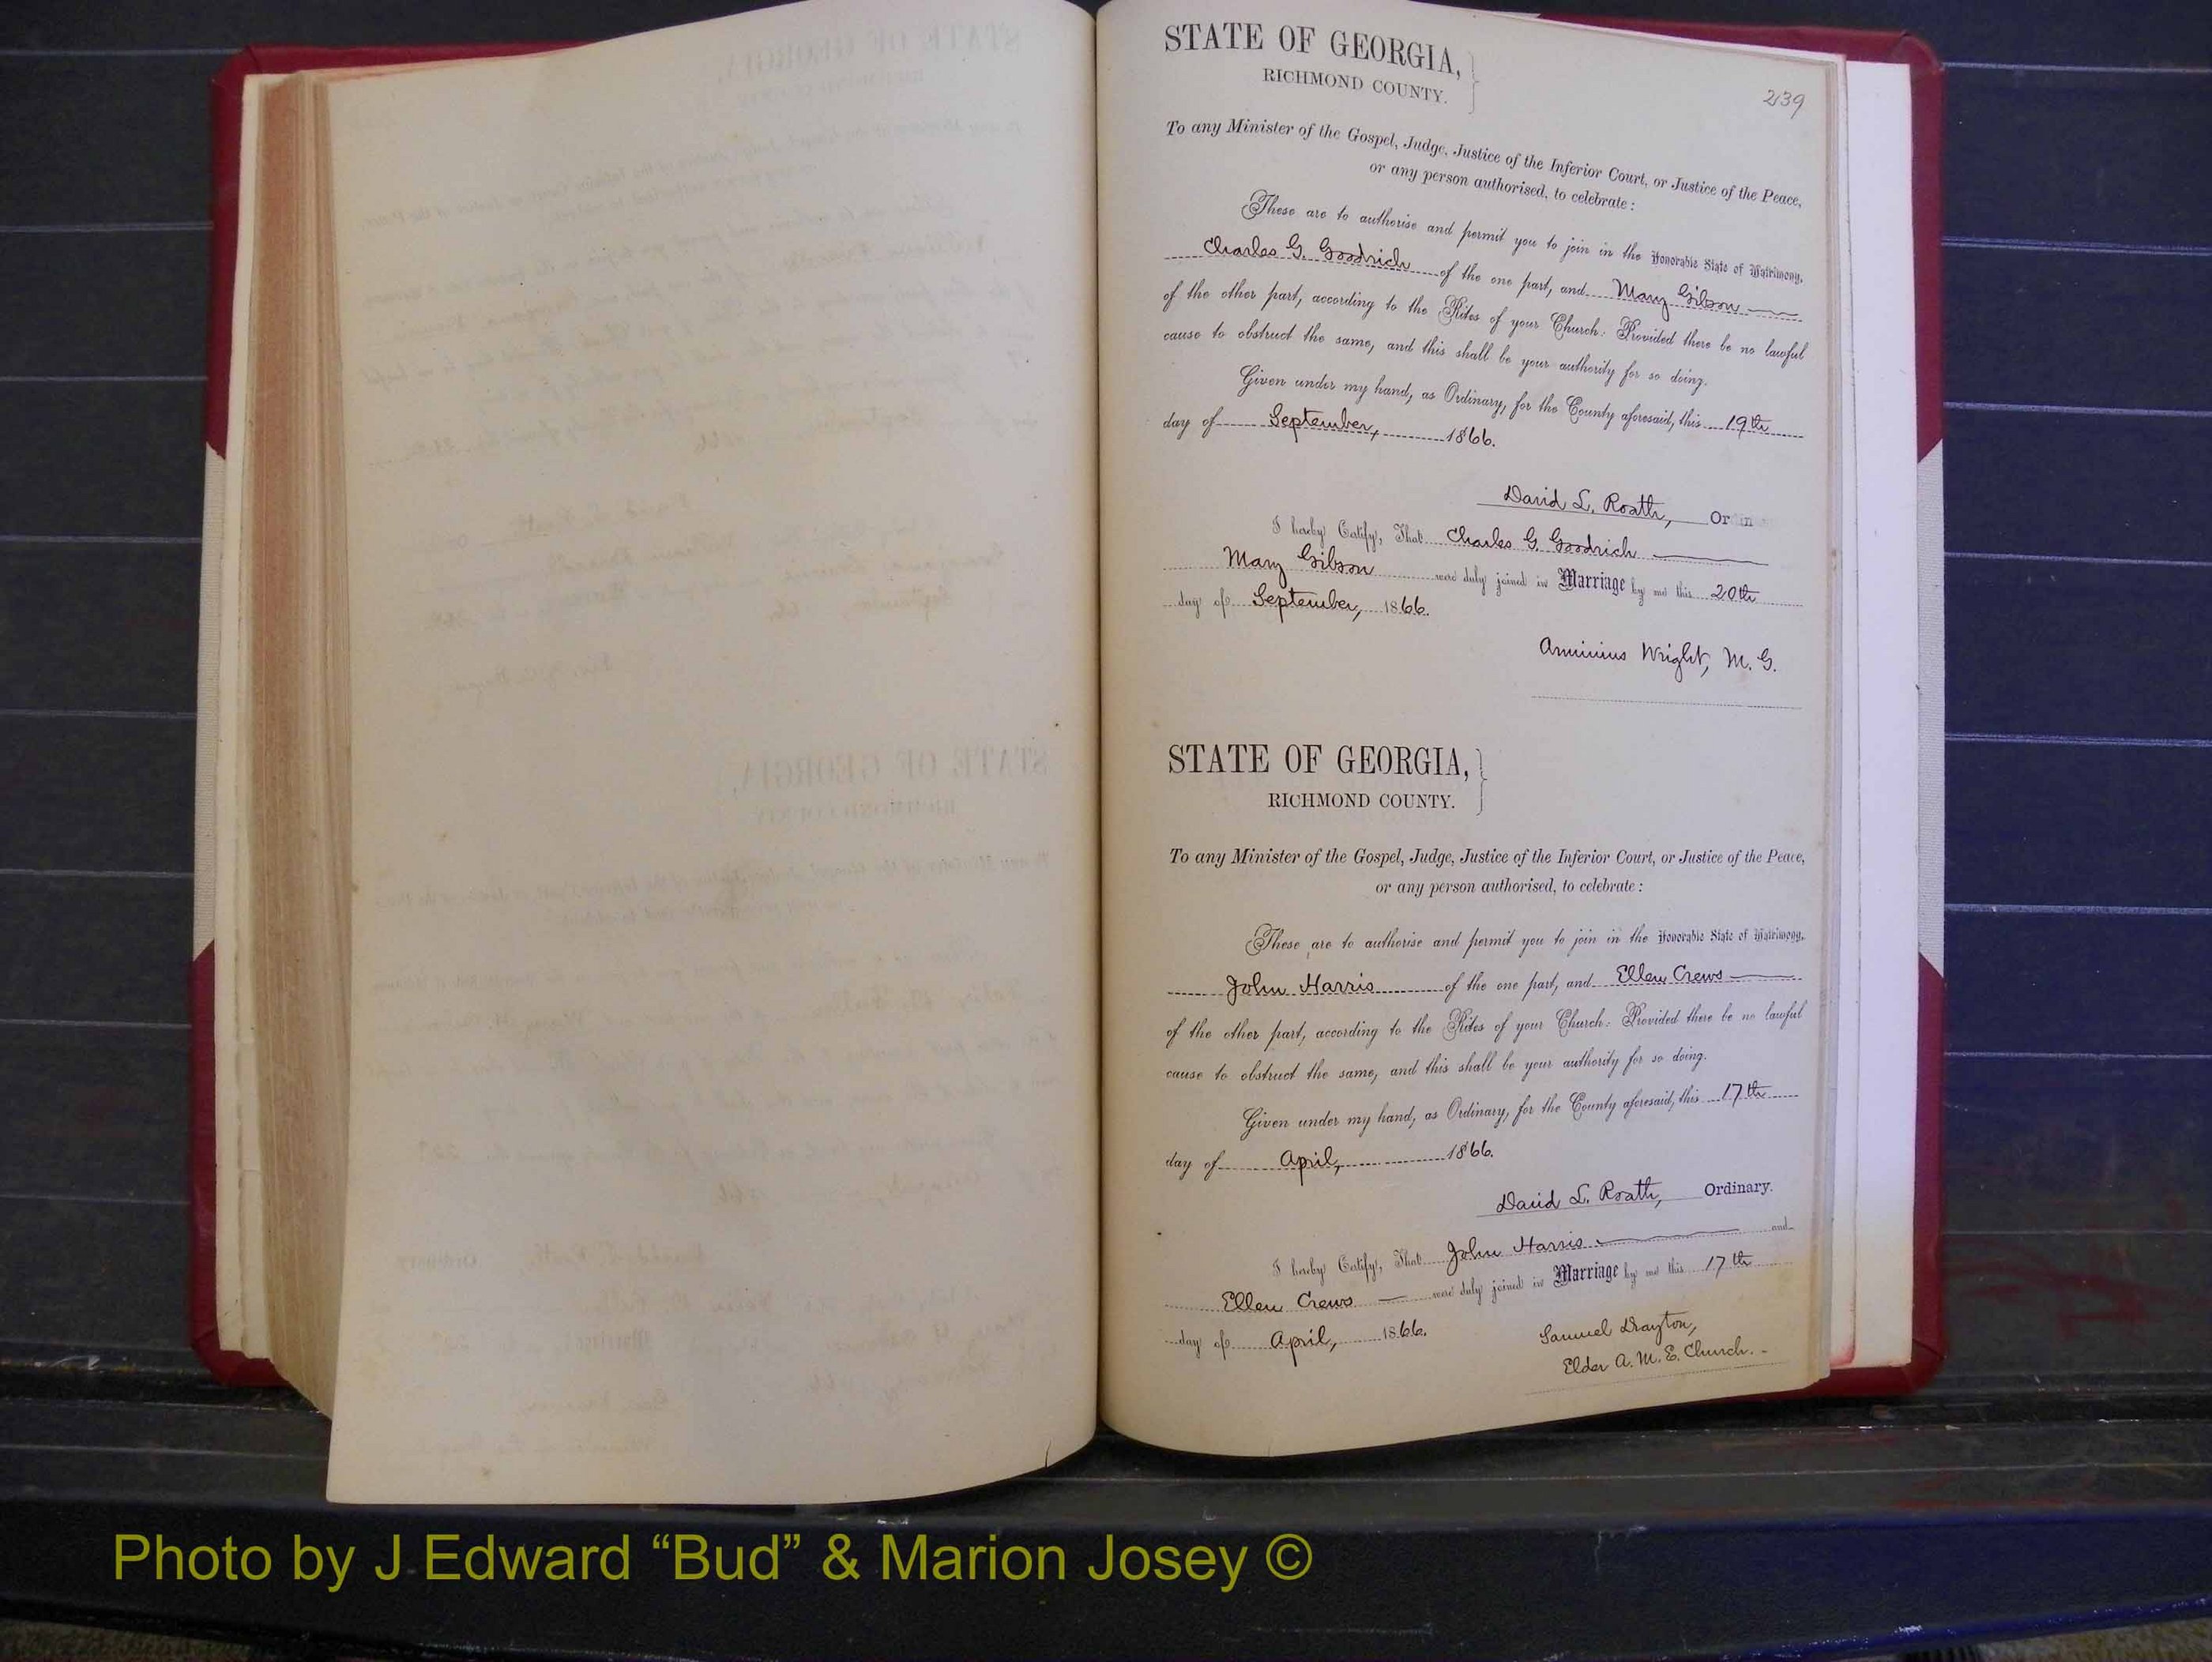 STATE OF GEORGIA,
RICHMOND COUNTY.
239
To any Minister of the Gospel, Judge, Justice of the Inferior Court, or Justice of the Peace,
or any person authorised, to celebrate:
These are to authorise and permit you to join in the Honorable State of Matrimony,
Charles G. Goodrich of the one part, and Mary Gibson
of the other part, according to the Rites of your Church: Provided there be no lawful
cause to obstruct the same, and this shall be your authority for so doing.
Given under my hand, as Ordinary, for the County aforesaid, this 19th
day of September, 1866.
David L. Roath, Ordin
I hereby Certify, That Charles G. Goodrich
Mary Gibson were duly joined in Marriage by me this 20th
day of September, 1866.
Arminius Wright, M. G.
STATE OF GEORGIA,
RICHMOND COUNTY.
To any Minister of the Gospel, Judge, Justice of the Inferior Court, or Justice of the Peace,
or any person authorised, to celebrate:
These are to authorise and permit you to join in the Honorable State of Matrimony,
John Harris of the one part, and Ellen Crews
of the other part, according to the Rites of your Church: Provided there be no lawful
cause to obstruct the same, and this shall be your authority for so doing.
Given under my hand, as Ordinary, for the County aforesaid, this 17th
day of April, 1866.
David L. Roath, Ordinary.
I hereby Certify, That John Harris and
Ellen Crews were duly joined in Marriage by me this 17th
day of April, 1866.
Samuel Drayton,
Elder A. M. E. Church.
Photo by J Edward “Bud” & Marion Josey ©